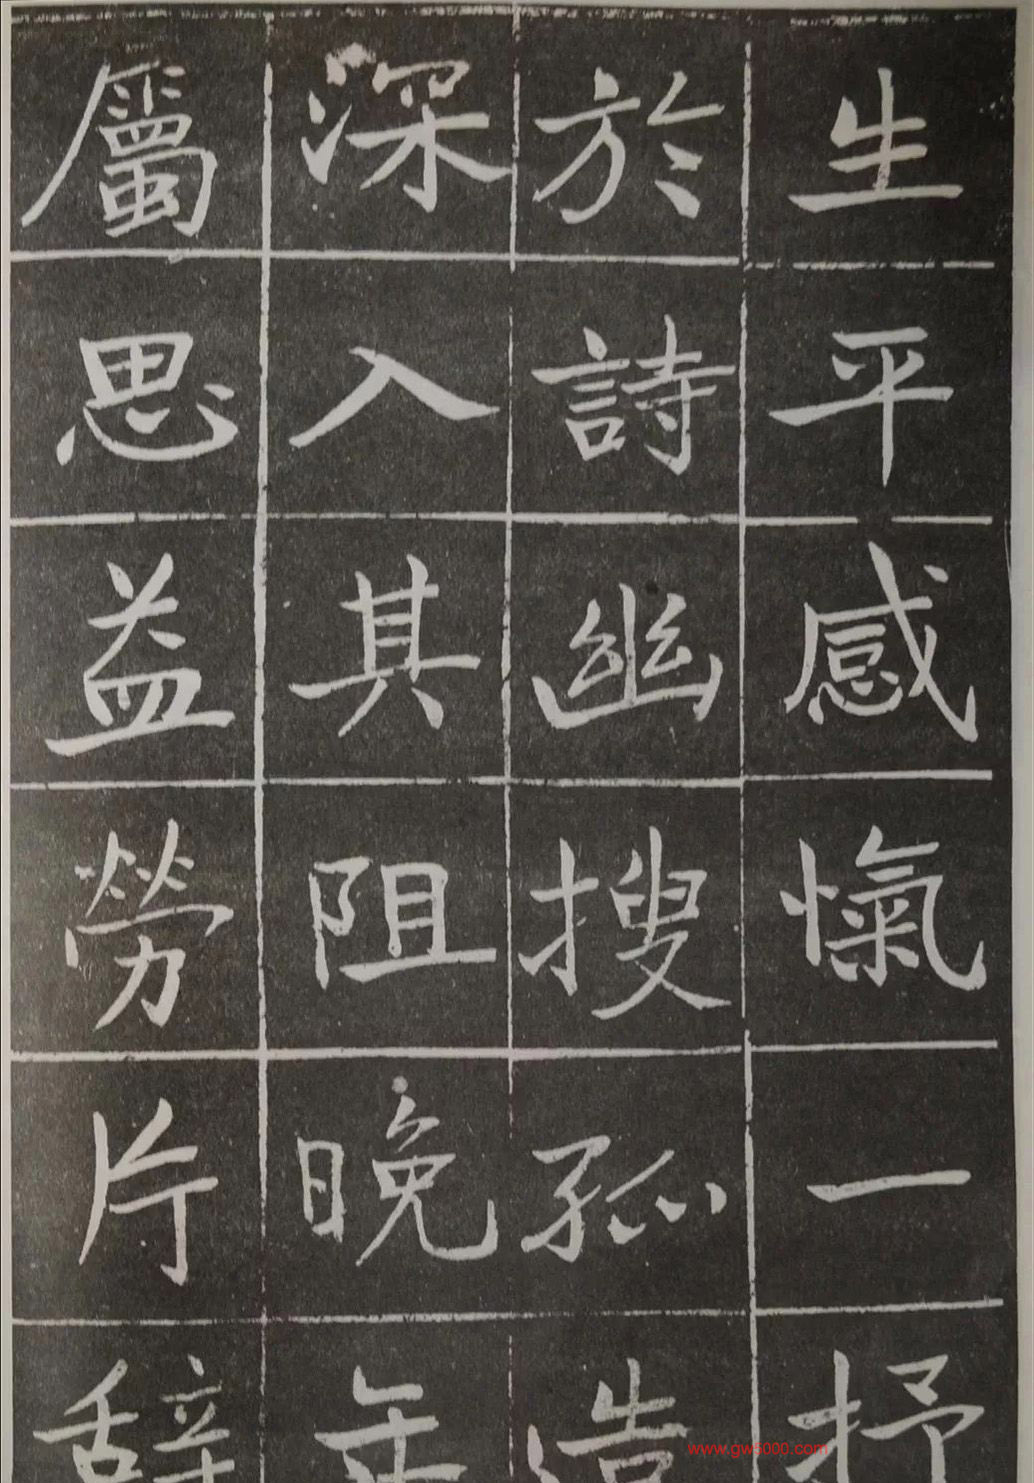 生平感愾一抒
於詩幽搜孤造
深入其阻晚年
屬思益勞片辭
www.gw5000.com